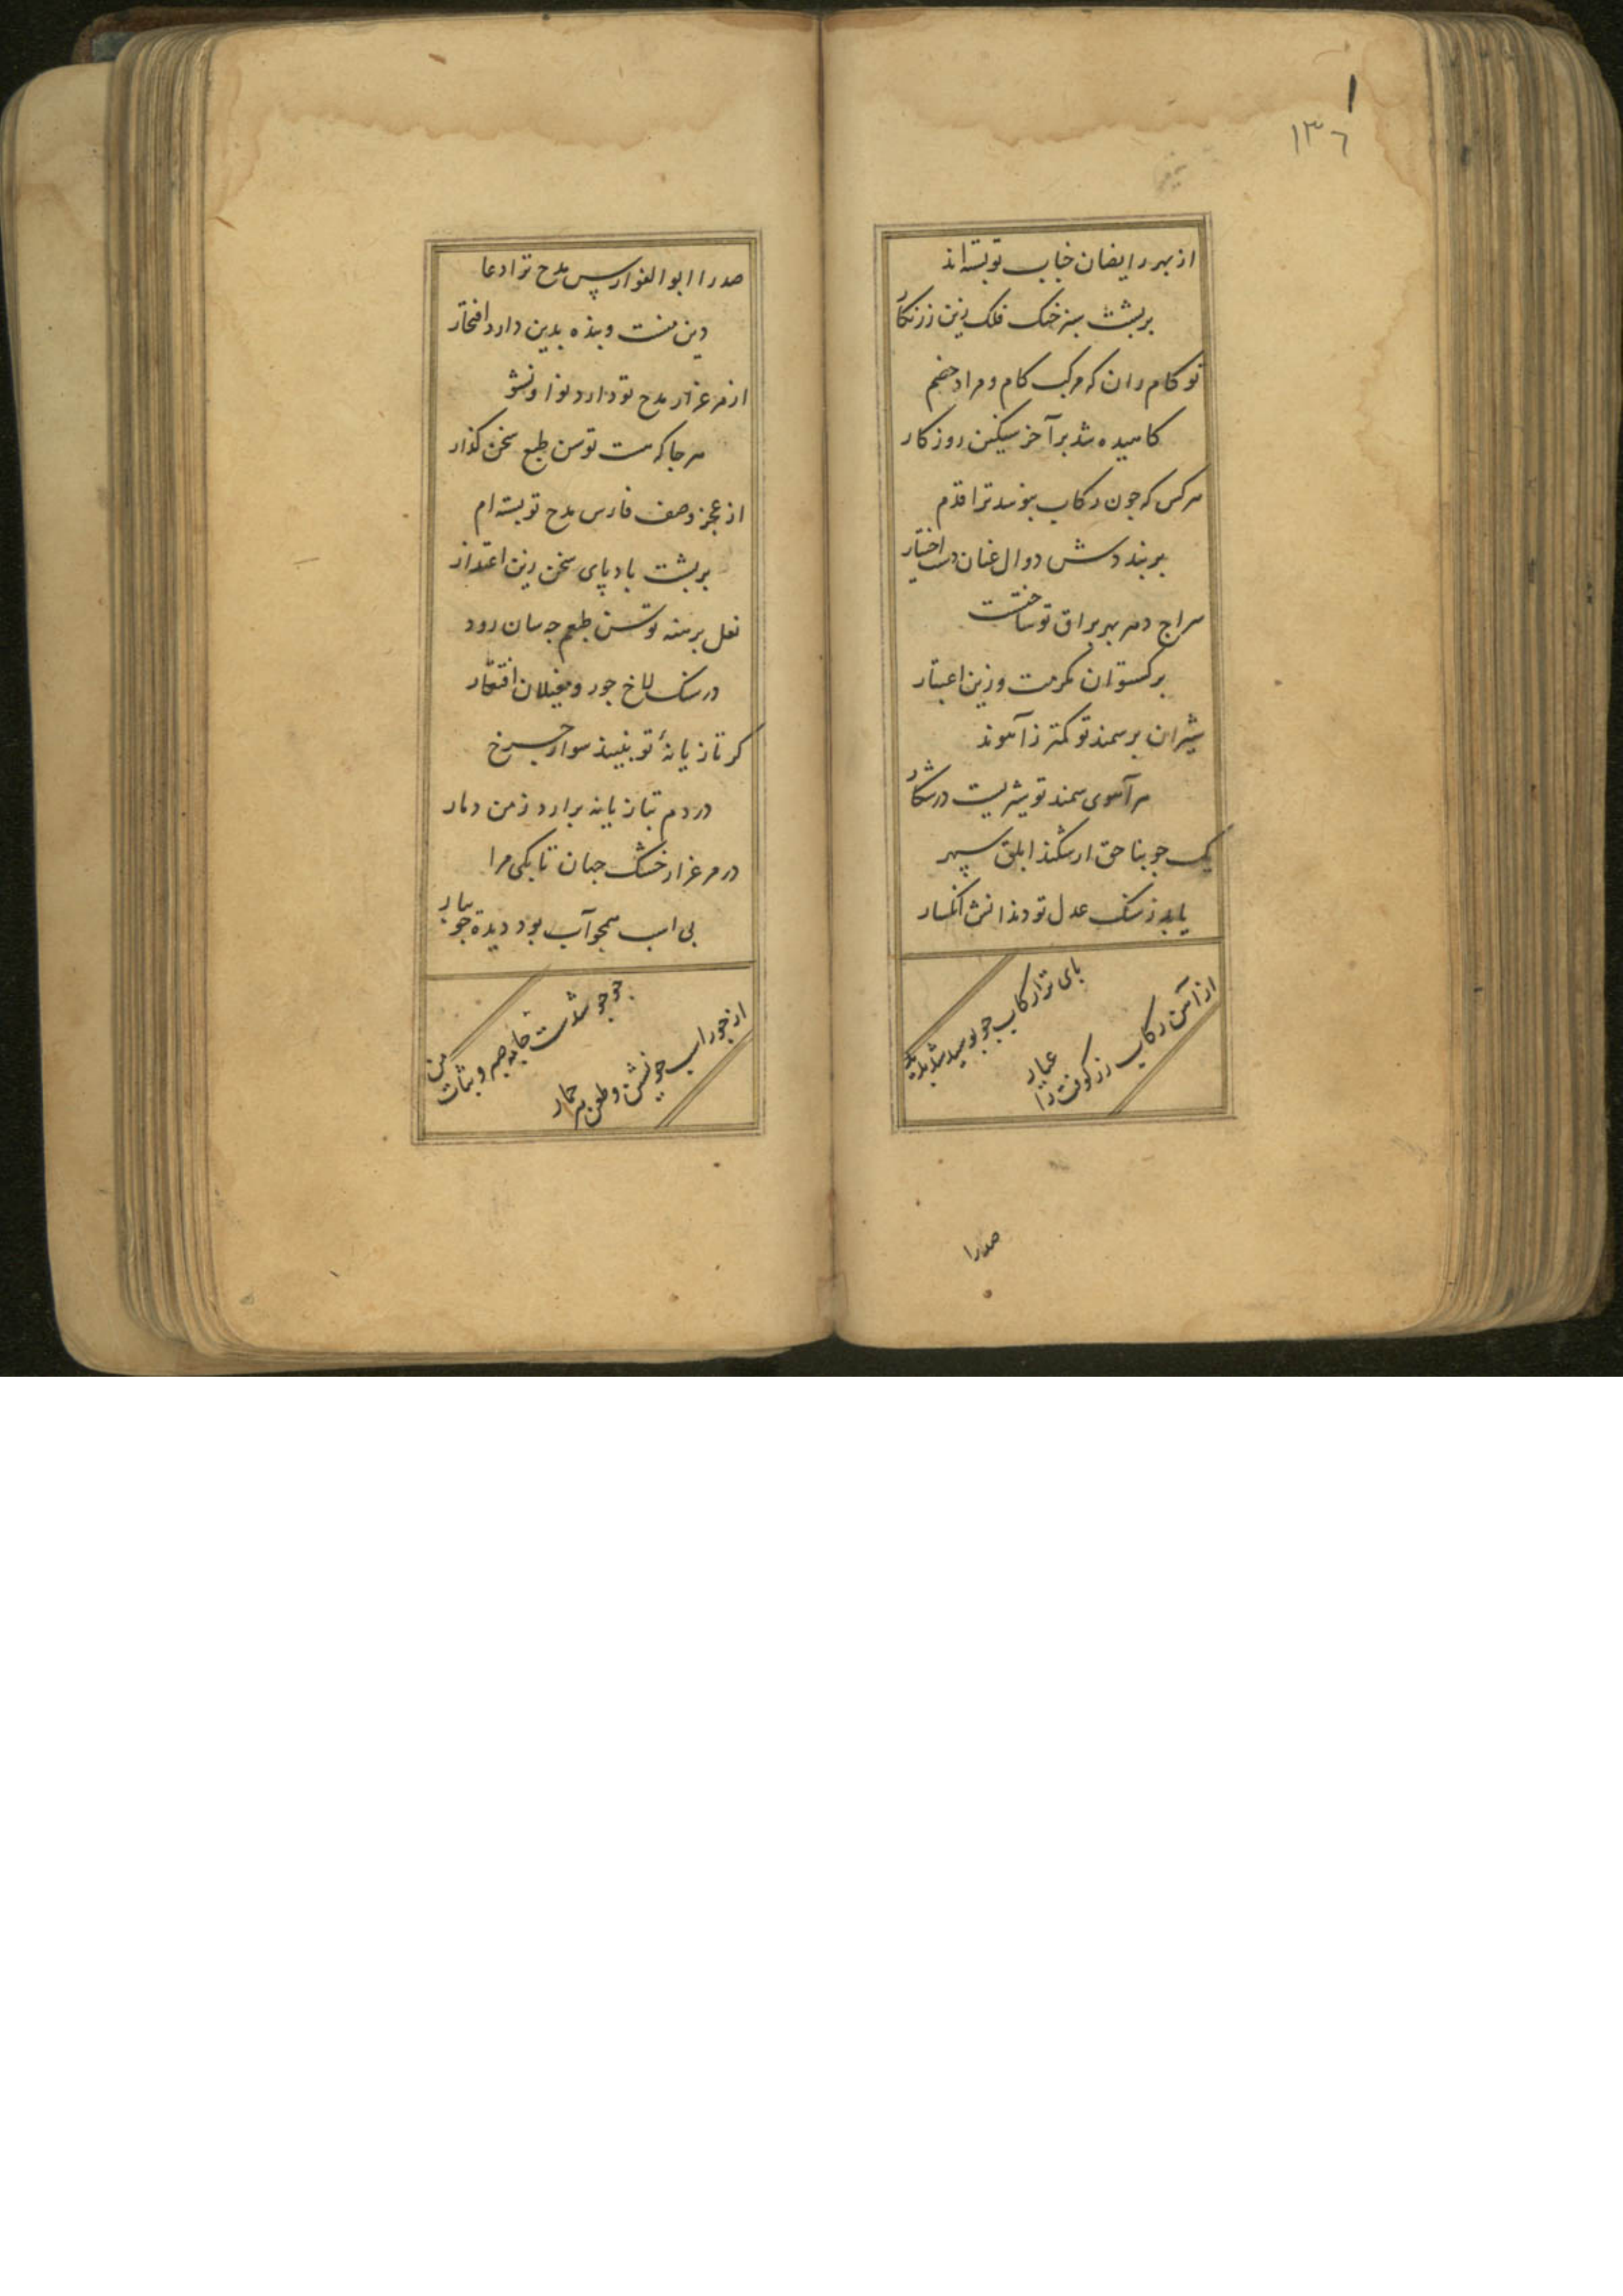 ١٣٦
از بهر رایضان جناب تو بسته‌اند
بر پشت سبز خنک فلک زین زرنکار
تو کام ران که مرکب کام و مراد خصم
کاهیده شد بر آخر سنکین روزکار
هرکس که جون رکاب ببوسد ترا قدم
بر بنددش دوال عنان دست اختیار
سراج دهر بهر براق تو ساختست
برکستوان مکرمت و زین اعتبار
شیران بر سمند تو کمتر ز آهوند
هر آهوی سمند تو شیریست در شکار
یک جو بناحق ار شکند ابلق سپهر
یابد ز سنک عدل تو دندانش انکسار
بای ترا رکاب جو بوسید شد بدید
از آهن رکاب زر کوفت را عیار
صدرا
صدرا ابوالفوارس مدح ترا دعا
دین منت و بنده بدین دارد افتخار
از مرغزار مدح تو دارد نوا و نشو
هر جا که هست توسن طبع سخن کذار
از عجز وصف فارس مدح تو بسته‌ام
بر پشت بادپای سخن زین اعتذار
نعل برهنه توسن طبعم جه سان رود
در سنک لاخ جور و مغیلان افتقار
کر تازیانهٔ تو نبیند سوار جرخ
در دم بتازیانه برارد ز من دمار
در مرغزار خشک جهان تا بکی مرا
بی اسب همجو آب بود دیده جویبار
جو جو شدست خانه صبر و ثبات من
از جور اسب خویشتن و طعن هر حمار